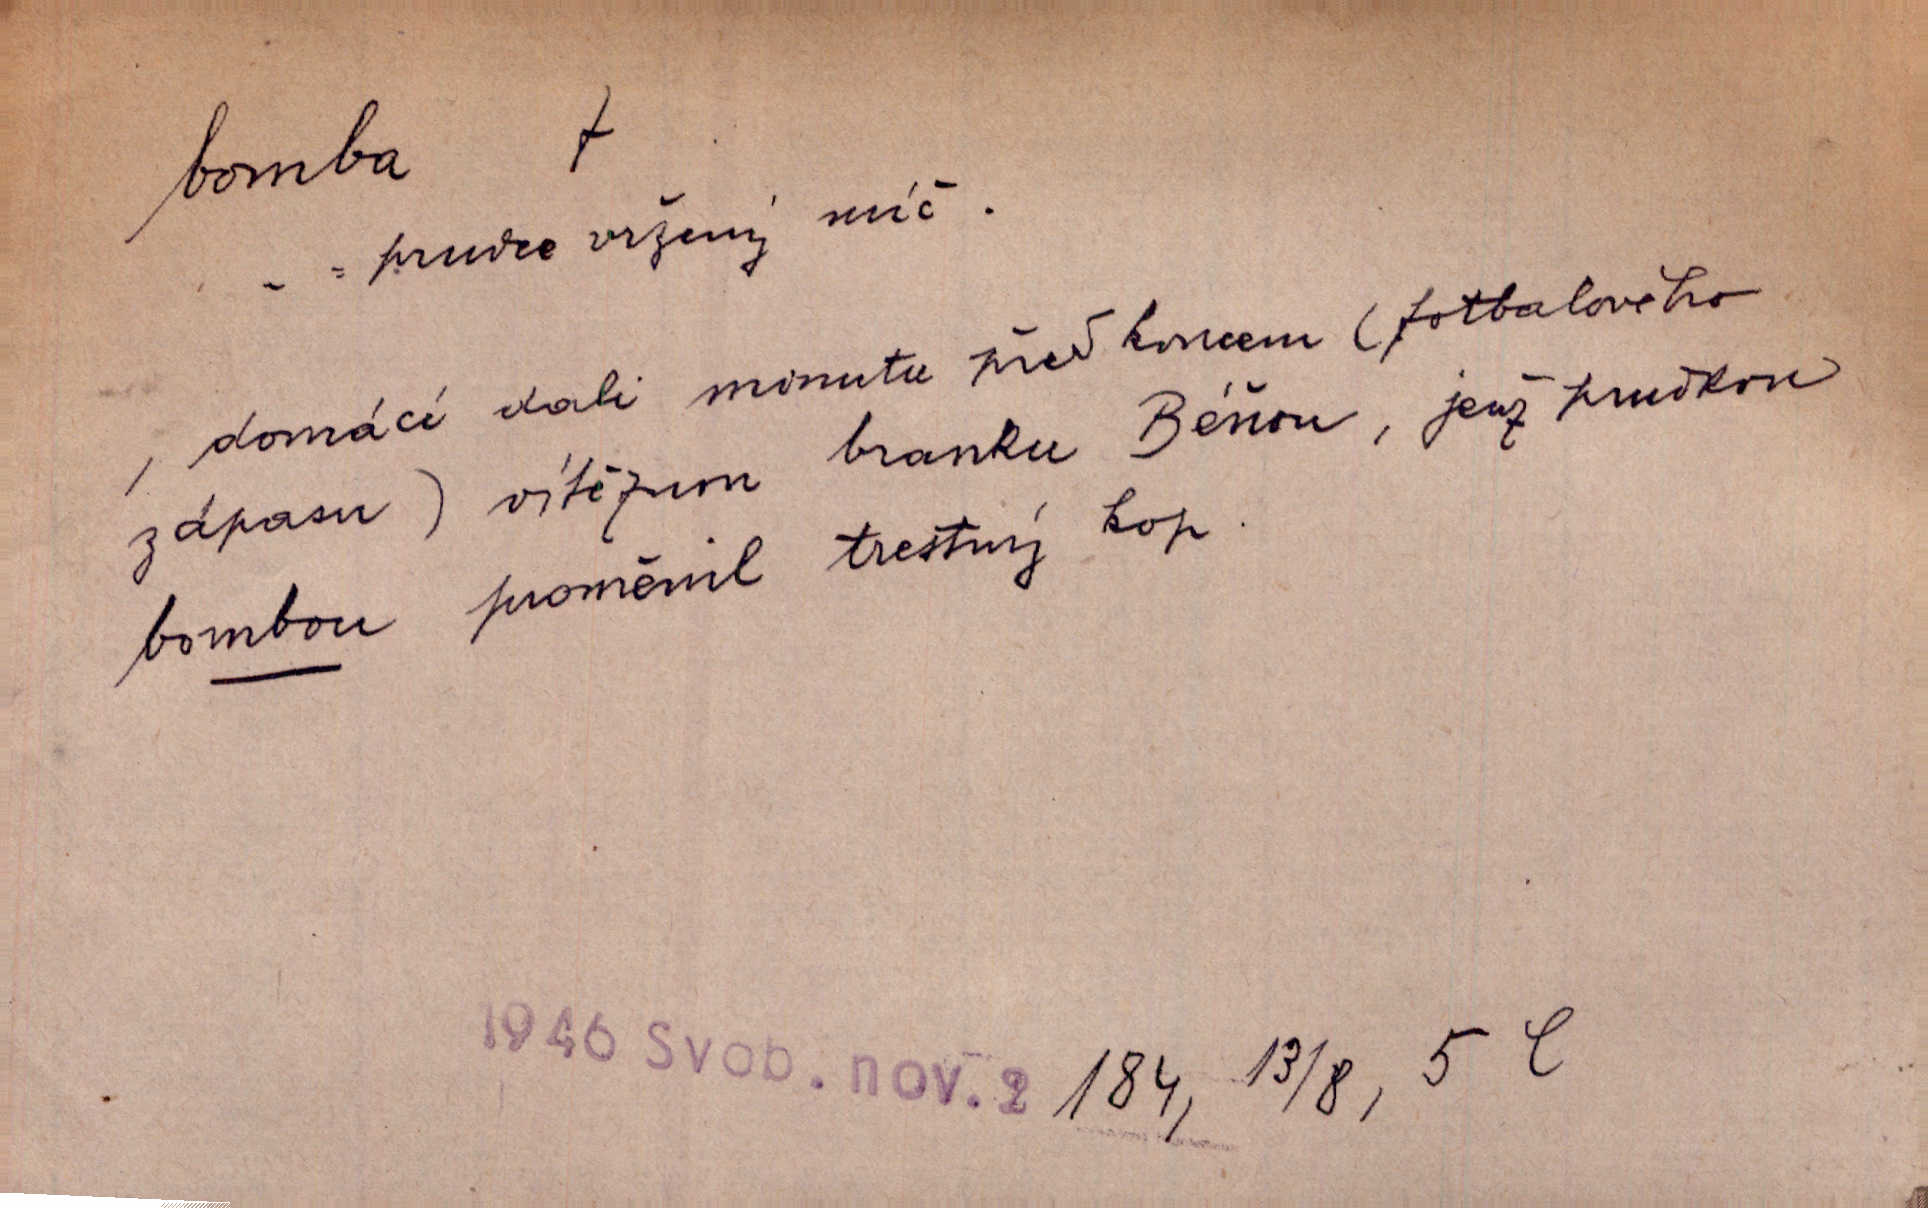 bomba f
- = prudce vržený míč.
, domácí dali minutu před koncem (fotbalového
zápasu) vítěznou branku Béňou, jenž prudkou
bombou proměnil trestný kop.
1946 Svob. nov. 2 184, 13/8, 5 C